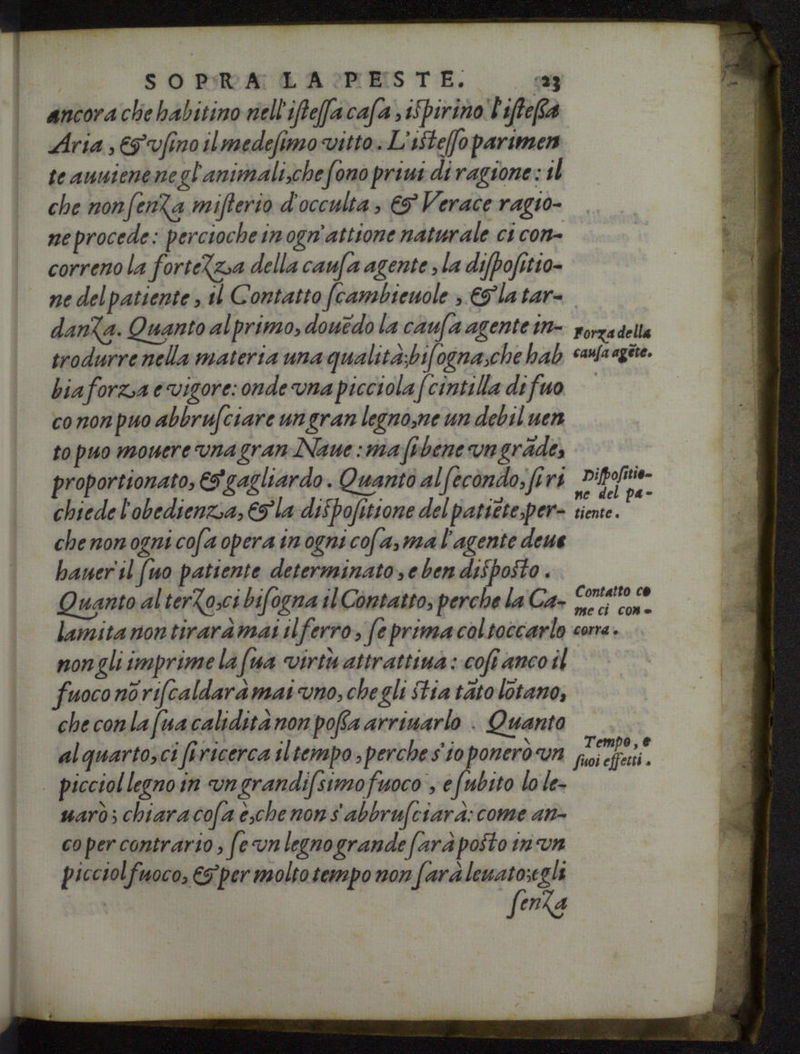 SOPRA LA PESTE. 23
ancora che habitino nell'istessa casa, ispirino l'istessa
Aria, & vsino il medesimo vitto. L'istesso parimen
te auuiene negl'animali, che sono priui di ragione: il
che non senza misterio d'occulta, & Verace ragio-
ne procede: percioche in ogn'attione naturale ci con-
correno la fortezza della causa agente, la dispositio-
ne del patiente, il Contatto scambieuole, & la tar-
danza. Quanto al primo, douẽdo la causa agente in-
Forza della
trodurre nella materia una qualità, bisogna, che hab
causa agẽte.
bia forza e vigore: onde vna picciola scintilla di fuo
co non puo abbrusciare un gran legno, ne un debil uen
to puo mouere vna gran Naue: ma si bene vn grãde,
proportionato, & gagliardo. Quanto al secondo, si ri
Dispositio-
ne del pa-
chiede l'obedienza, & la dispositione del patiẽte, per-
tiente.
che non ogni cosa opera in ogni cosa, ma l'agente deue
hauer il suo patiente determinato, e ben disposto.
Quanto al terzo, ci bisogna il Contatto, perche la Ca-
Contatto co
me ci con-
lamita non tirarà mai il ferro, se prima col toccarlo
corra.
non gli imprime la sua virtù attrattiua: cosi anco il
fuoco nõ riscaldarà mai vno, che gli stia tãto lõtano,
che con la sua calidità non possa arriuarlo. Quanto
al quarto, ci si ricerca il tempo, perche s'io ponerò vn
Tempo, e
suoi effetti.
picciol legno in vn grandissimo fuoco, e subito lo le-
uarò; chiara cosa è, che non s'abbrusciarà: come an-
co per contrario, se vn legno grande sarà posto in vn
picciol fuoco, & per molto tempo non sarà leuato; egli
senza